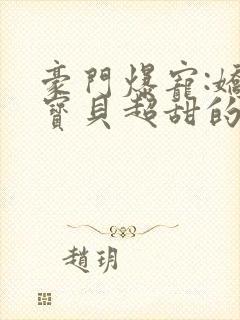 豪門爆寵:嬌
寶貝超甜的
趙玥